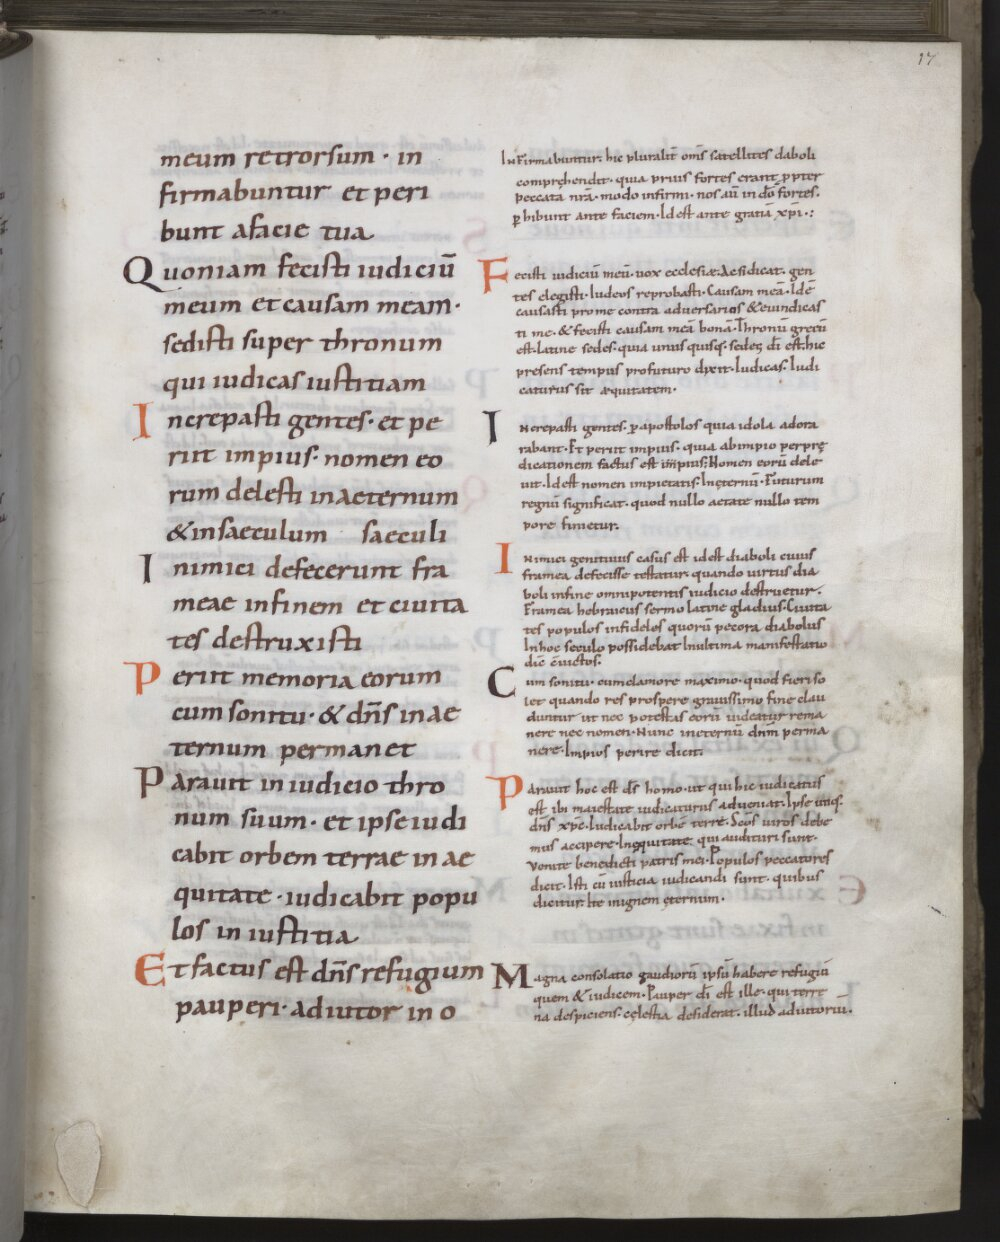 17
meum retrorsum · in
firmabuntur et peri
bunt afacie tua
Quoniam fecisti iudiciū
meum et causam meam·
sedisti super thronum
qui iudicas iustitiam
Increpasti gentes· et pe
riit impius· nomen eo
rum delesti inaeternum
&insaeculum saeculi
Inimici defecerunt fra
meae infinem et ciuita
tes destruxisti
Periit memoria eorum
cum sonitu· & dn̄s in ae
ternum permanet
Parauit in iudicio thro
num suum· et ipse iudi
cabit orbem terrae in ae
quitate · iudicabit popu
los in iustitia
Et factus est dn̄s refugium
pauperi· adiutor in o
Infirmabuntur· hic pluralit̄ om̄s satellites diaboli
compręhendit· quia prius fortes erant ꝓpter
peccata nr̄a· modo infirmi· nos aū in dō fortes·
ꝑhibunt ante faciem· Idest ante gratia xp̄i·:
Fecisti iudiciū meū· uox ecclesiæ· Aesi dicat· gen
tes elegisti· Iudeos reprobasti· Causam meā· Idē
causasti prome contra aduersarios &euindicas
ti me· & fecisti causam meā bonā· Thronū grecū
est· latine sedes· quia unus quisq; sedes dī est· hic
presens tempus profuturo dixit· Iudicas· Iudi
caturus sit æquitatem·
Increpasti gentes· ꝑapostolos quia idola adora
rabant· Et periit impius· quia abimpio perprę
dicationem factus est impius· Nomen eorū dele
uit· Idest nomen impietatis· Inęternū· Futurum
regnū significat· quod nullo aetate nullo tem
pore finietur·
Inimici genitiuus casus est idest diaboli cuius
framea defecisse testatur· quando uirtus dia
boli infine omnipotentis iudicio destruetur·
Framea hebraicus sermo latine gladius· Ciuita
tes populos infideles quorū pecora diabolus
Inhoc seculo possidebat Inultima manifestatio
Cum sonitu· cumclamore maximo· quod fieri so
let quando res prospere grauissimo fine clau
duntur ut nec potestas eorū uideatur rema
nere nec nomen· Nunc ineternū dn̄m perma
nere· Impios perire dicit·
Parauit hoc est ds̄ homo· ut qui hic iudicatus
est ibi maiestate iudicaturus adueniat· Ipse utiq;
dn̄s xp̄c· Iudicabit orbē terre· Sc̄os uiros debe
mus accipere· Inęquitate· qui audituri sunt·
Uenite benedicti patris mei· Populos peccatores
dicit· Isti cū iusticia iudicandi sunt· quibus
dicitur· Ite inignem ęternum·
Magna consolatio gaudiorū ipsū habere refugiū
quem & iudicem· Pauper dī est ille· qui terre
na despiciens· cęlestia desiderat· illud adiutoriū·